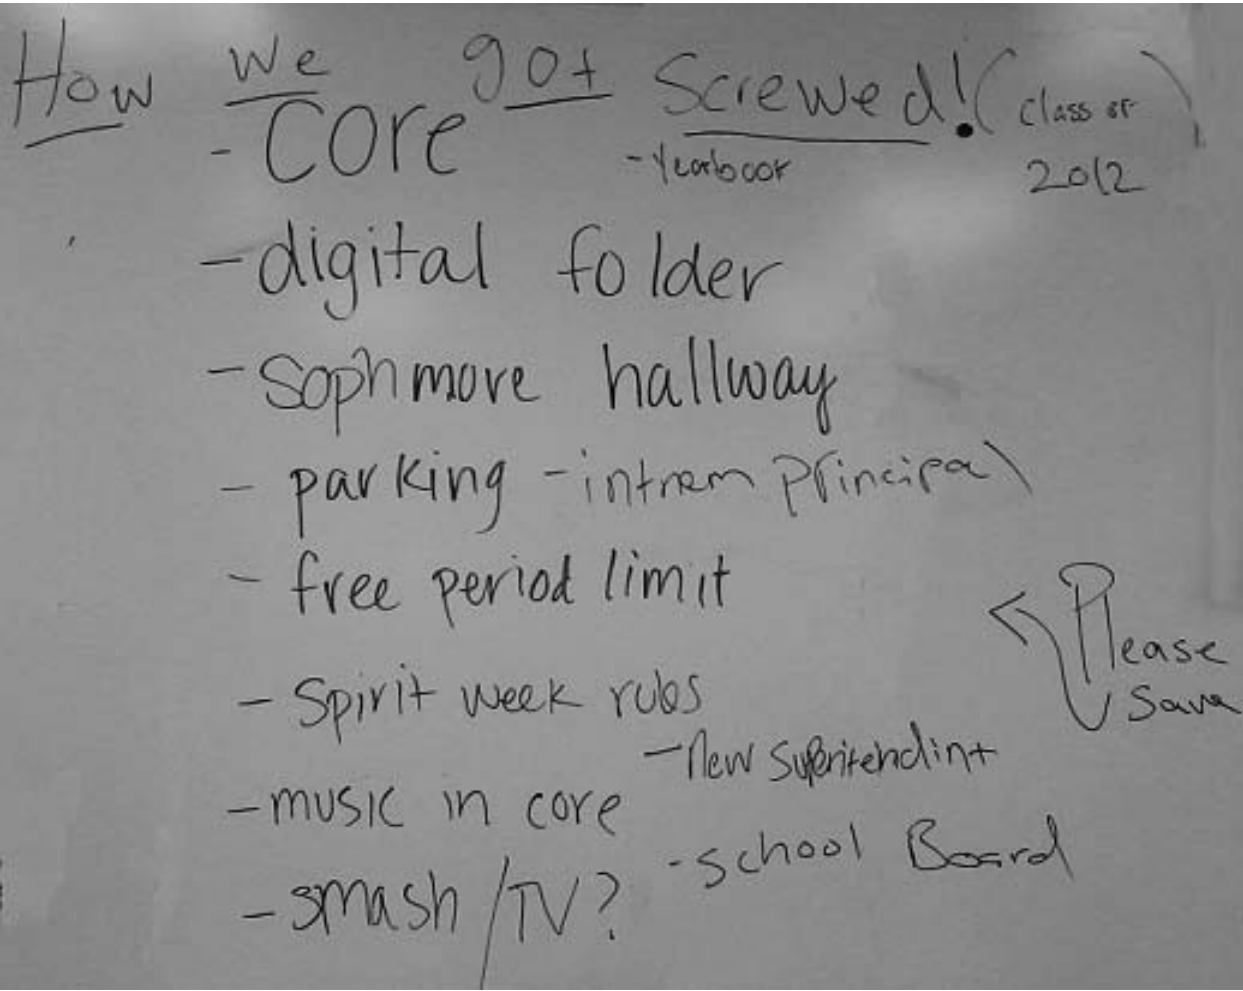 How we got Screwed! (class of 2012)
- Core
- Yearbook
- digital folder
- Sophmore hallway
- parking - intrem principal
- free period limit
Please Save
- Spirit week rules
- New Superitendint
- music in core
- school Board
- smash / TV?